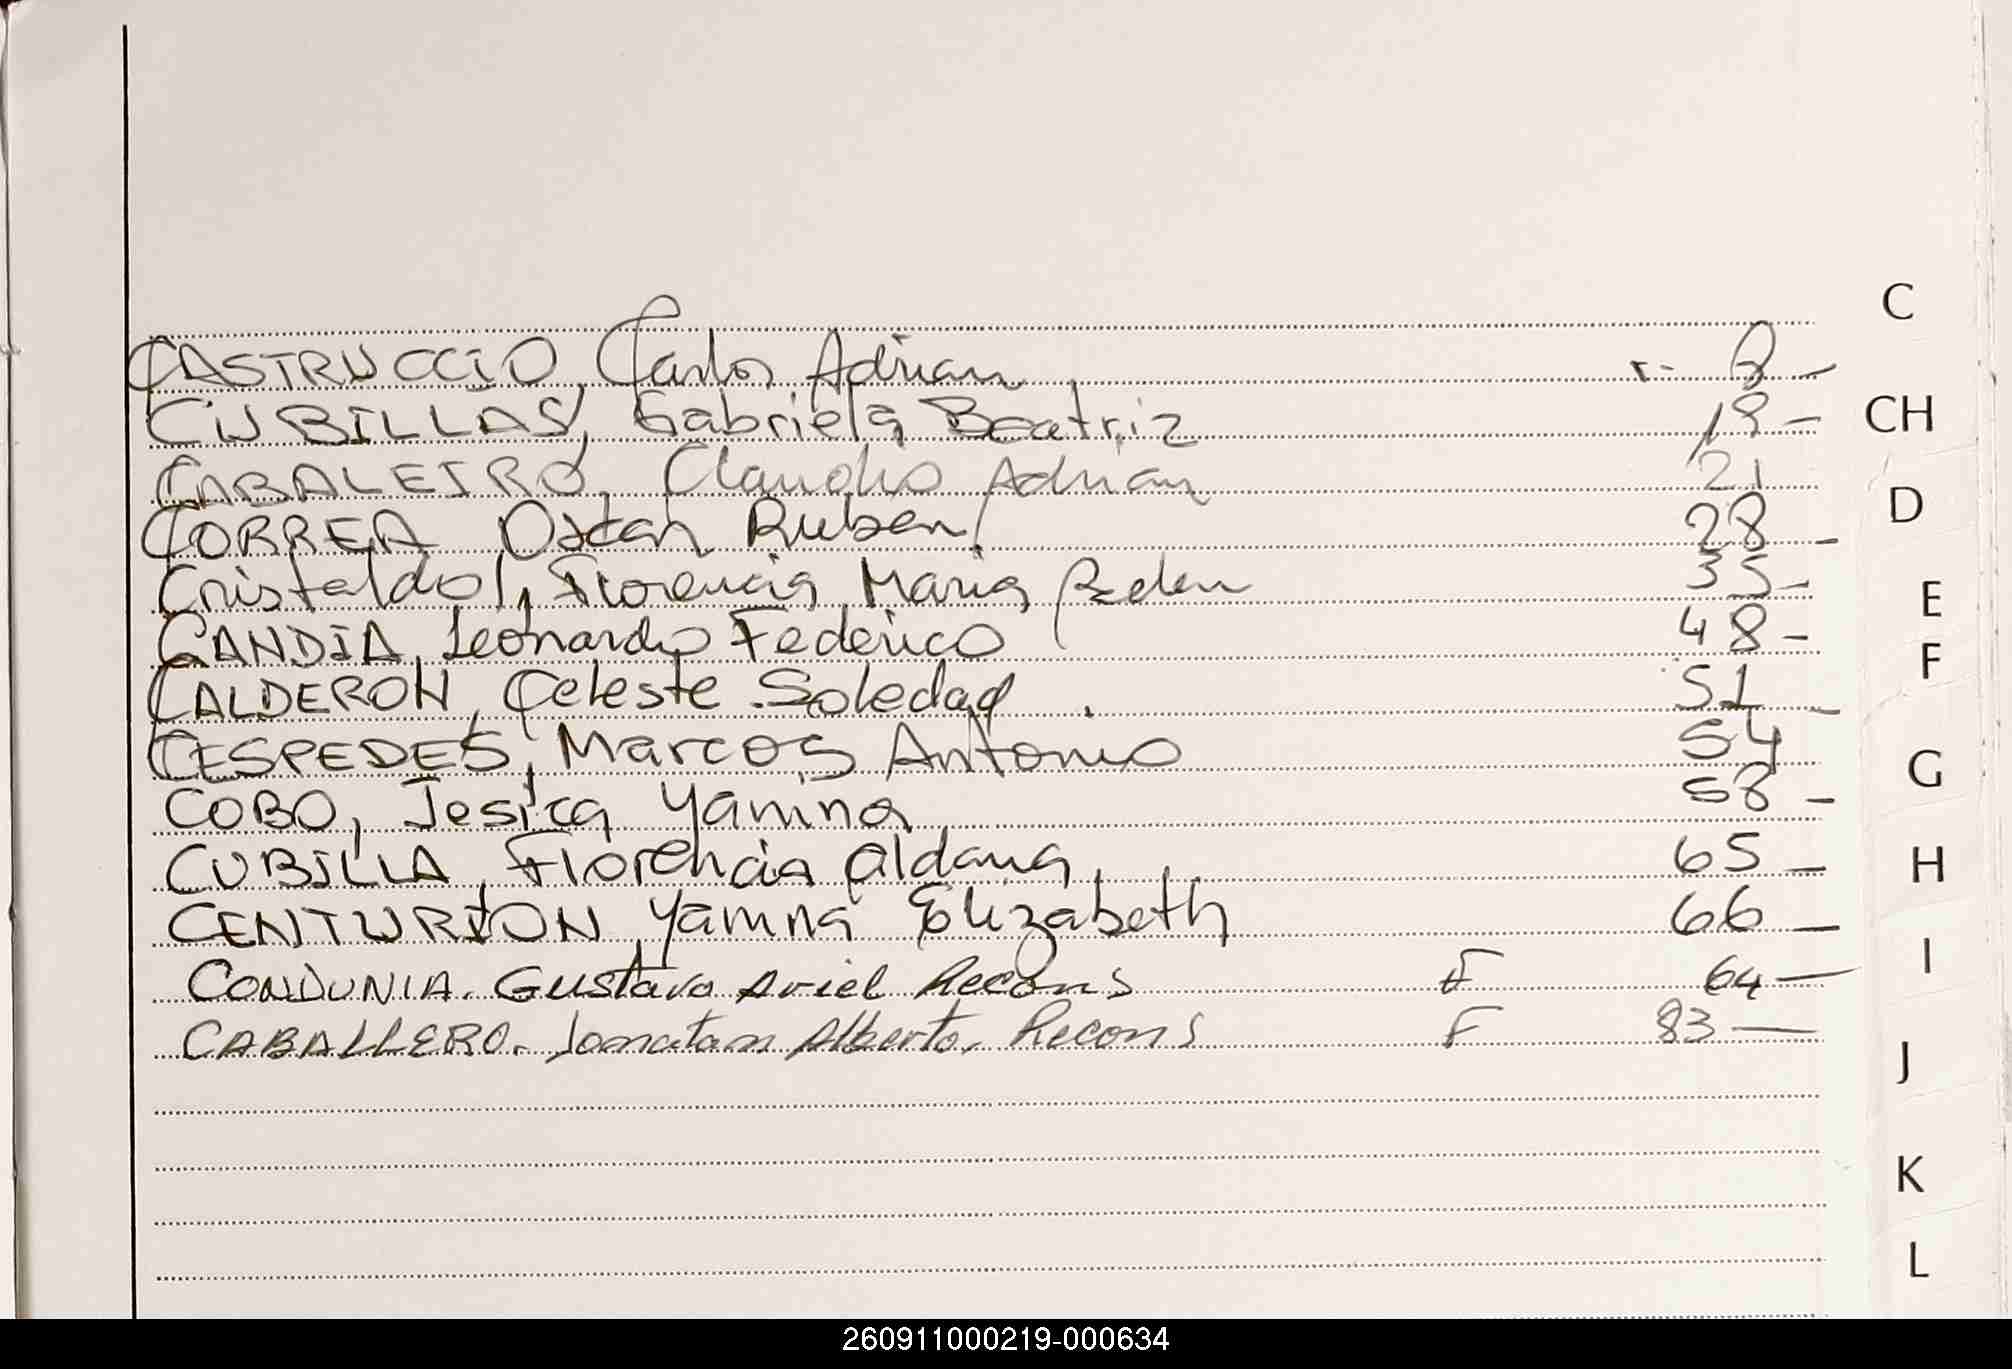 C
CASTRUCCIO, Carlos Adrian 8 -
CUBILLAS, Gabriela Beatriz 18 -
CH
CABALEIRO, Claudio Adrian 21
CORREA Oscar Ruben 28 -
D
Cristaldo, Florencia Maria Belen 35 -
E
CANDIA, Leonardo Federico 48 -
F
CALDERON, Celeste Soledad 51 -
CESPEDES, Marcos Antonio 54
G
COBO, Jesica Yanina 58 -
CUBILLA, Florencia Aldana 65 -
H
CENTURION, Yanina Elizabeth 66 -
I
CONDUNIA. Gustavo Ariel Recons F 64 -
CABALLERO. Jonatan Alberto. Recons F 83 -
J
K
L
260911000219-000634